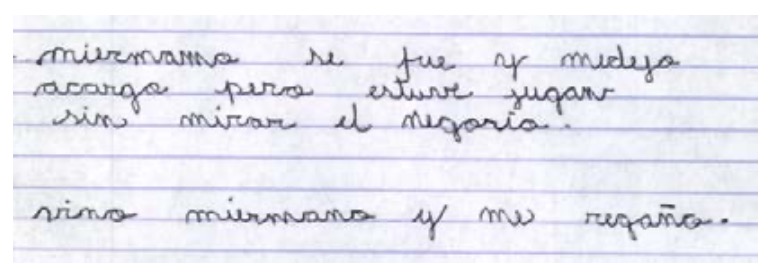 miermano se fue y medejo
acargo pero estuve jugano
sin mirar el negocio.
vino miermano y me regaño.